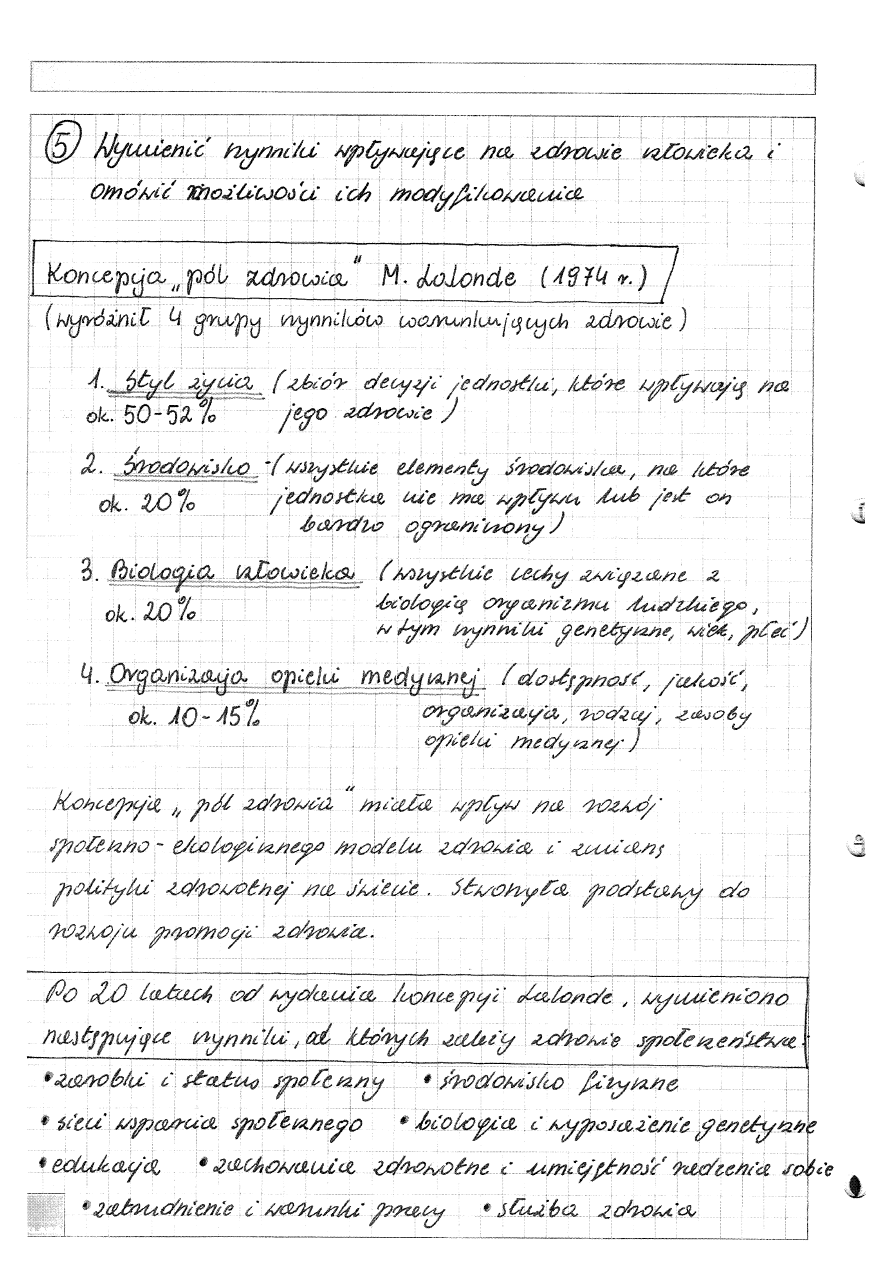 5 Wymienić czynniki wpływające na zdrowie człowieka i
omówić możliwości ich modyfikowania
Koncepcja „pól zdrowia" M. Lalonde (1974 r.)
(wyróżnił 4 grupy czynników warunkujących zdrowie)
1. Styl życia (zbiór decyzji jednostki, które wpływają na
ok. 50-52% jego zdrowie)
2. Środowisko - (wszystkie elementy środowiska, na które
ok. 20% jednostka nie ma wpływu lub jest on
bardzo ograniczony)
3. Biologia człowieka (wszystkie cechy związane z
biologią organizmu ludzkiego,
ok. 20% w tym czynniki genetyczne, wiek, płeć)
4. Organizacja opieki medycznej (dostępność, jakość,
ok. 10-15% organizacja, rodzaj, zasoby
opieki medycznej)
Koncepcja „pól zdrowia" miała wpływ na rozwój
społeczno-ekologicznego modelu zdrowia i zmianę
polityki zdrowotnej na świecie. Stworzyła podstawy do
rozwoju promocji zdrowia.
Po 20 latach od wydania koncepcji Lalonde, wymieniono
następujące czynniki, od których zależy zdrowie społeczeństwa:
• zarobki i status społeczny • środowisko fizyczne
• sieci wsparcia społecznego • biologia i wyposażenie genetyczne
• edukacja • zachowania zdrowotne i umiejętność radzenia sobie
• zatrudnienie i warunki pracy • służba zdrowia